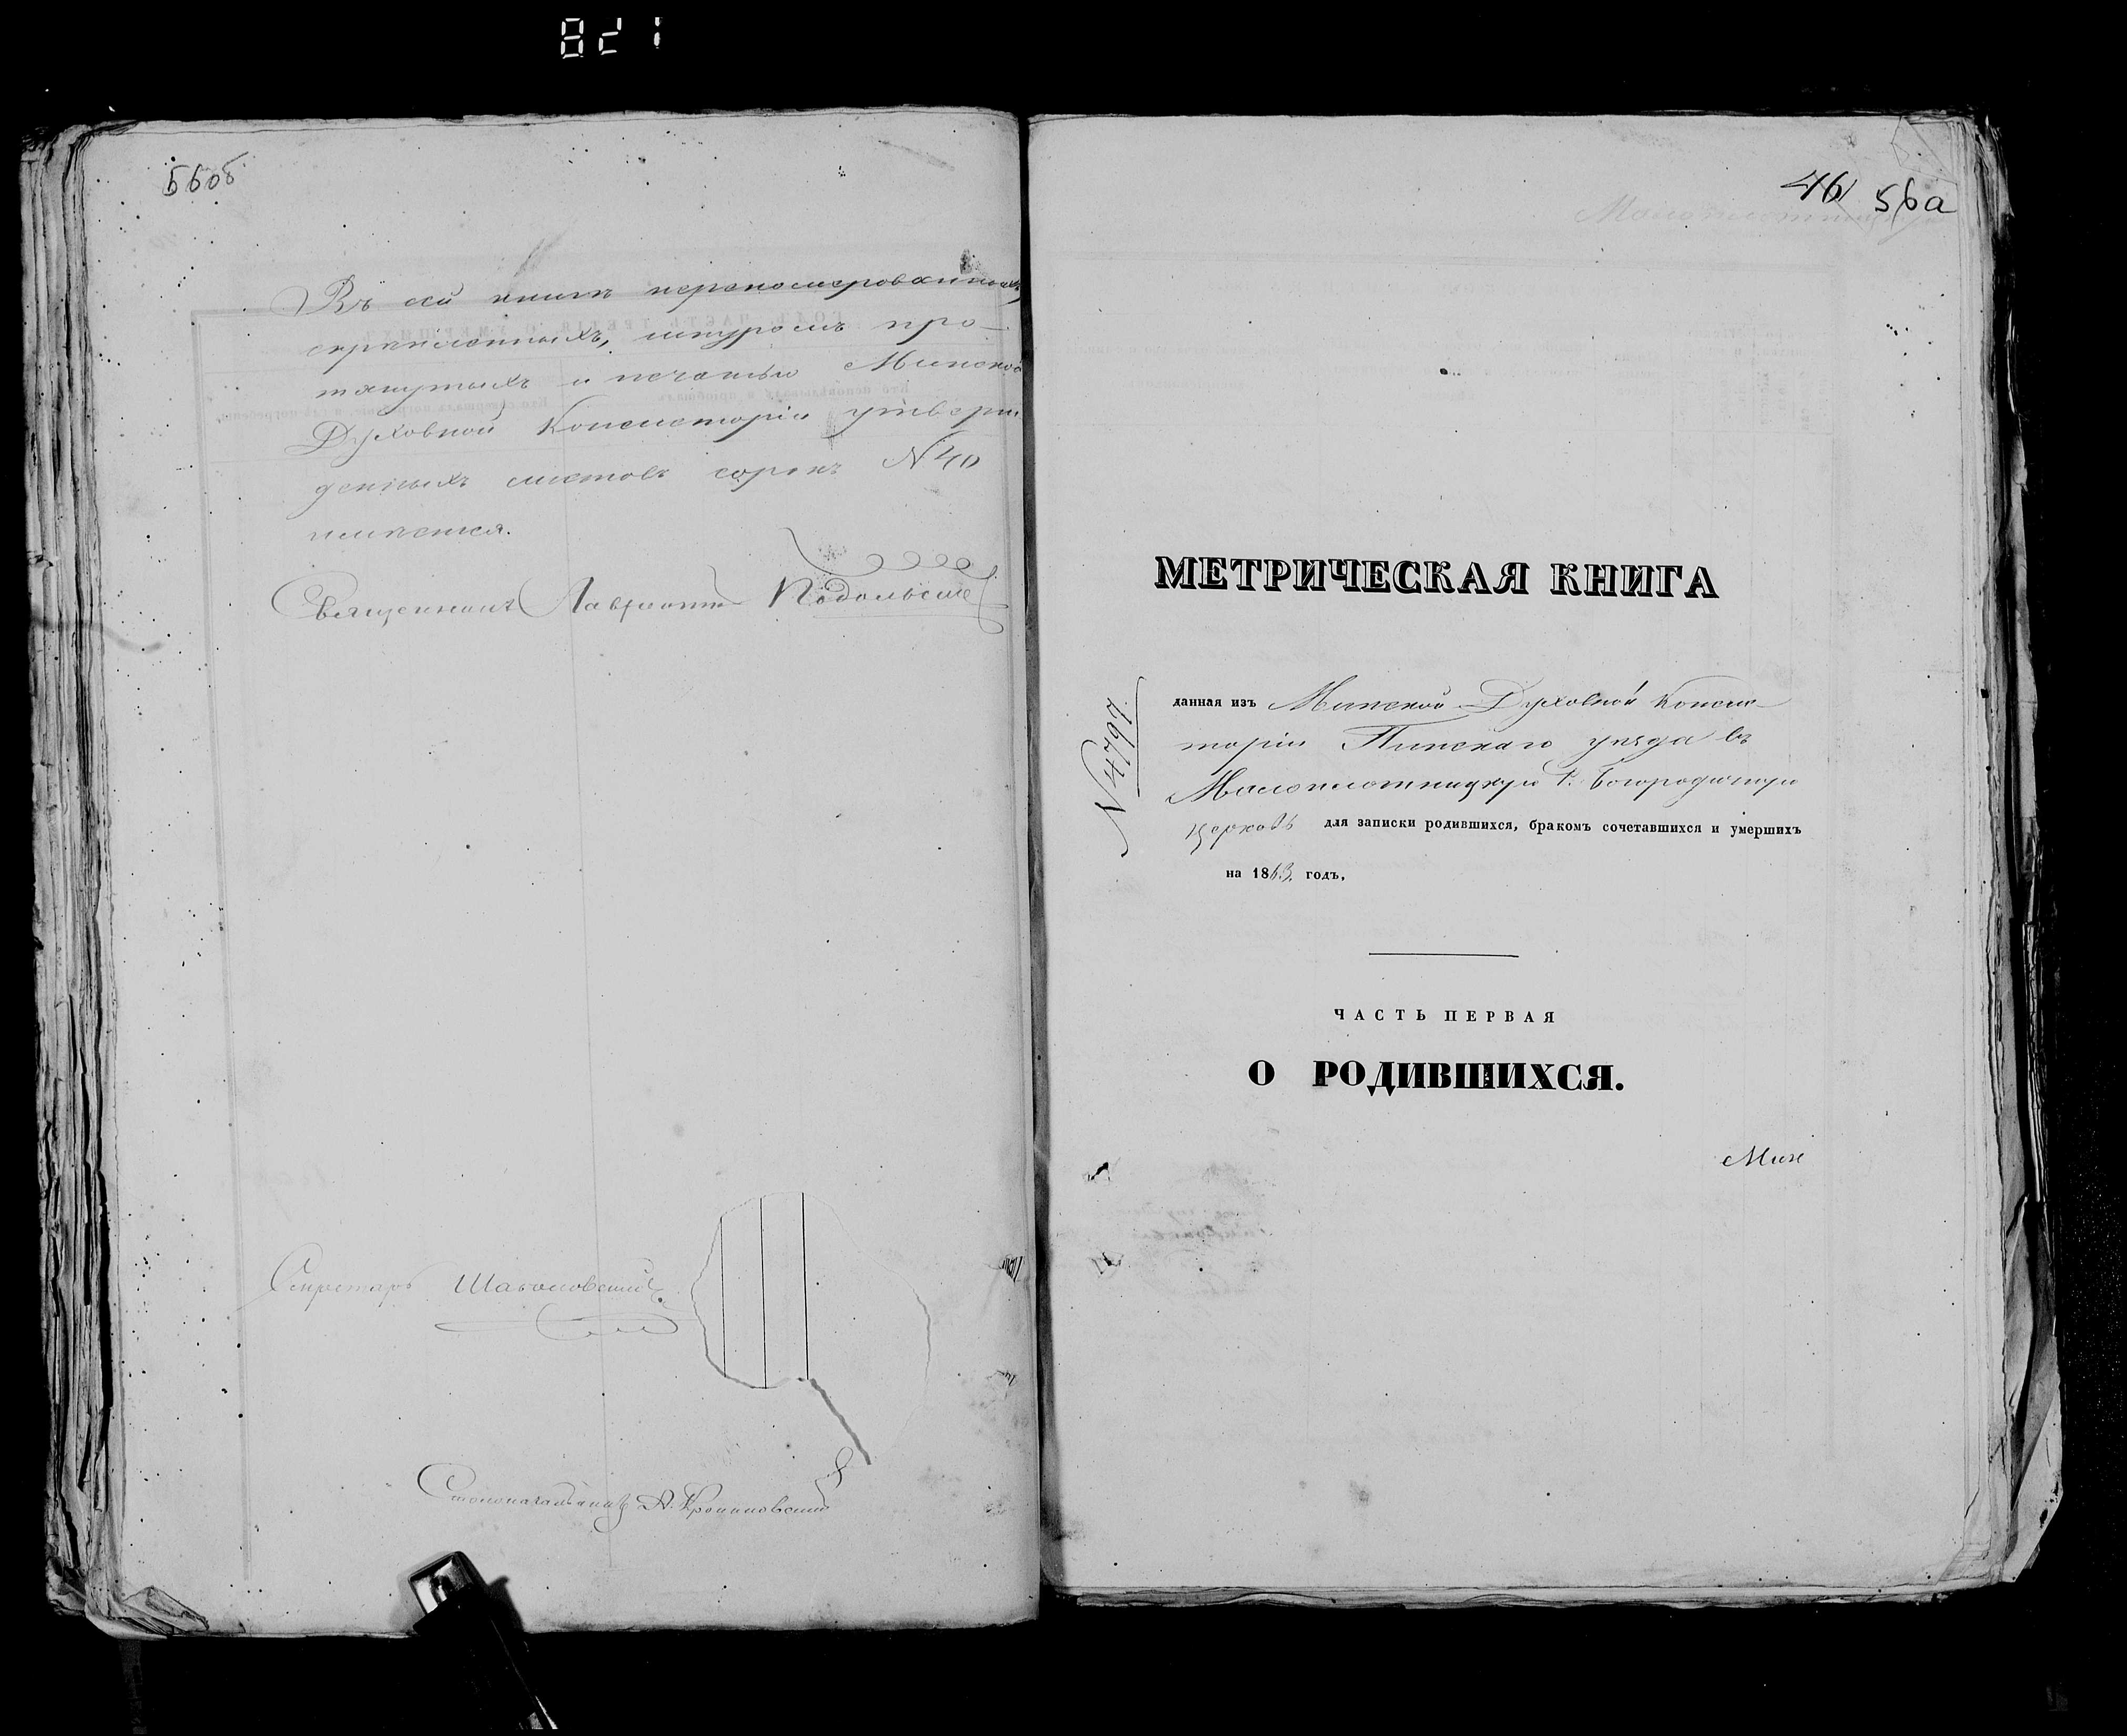 821
56об
Въ сей книгѣ переномерованныхъ,
скрѣпленныхъ, шнуромъ про-
тянутыхъ и печатью Минской
Духовной Консисторіи утверж
денныхъ листовъ сорокъ № 40
имѣется.
Священникъ Лаврентій
Секретарь
Столоначальникъ А.
46 56а
МЕТРИЧЕСКАЯ КНИГА
№ 4797
данная изъ Минской Духовной Консис-
торіи Пинскаго уѣзда въ
Малоплотницкую Р. Богородичную
Церковь для записки родившихся, бракомъ сочетавшихся и умершихъ
на 1863. годъ.
ЧАСТЬ ПЕРВАЯ
О РОДИВШИХСЯ.